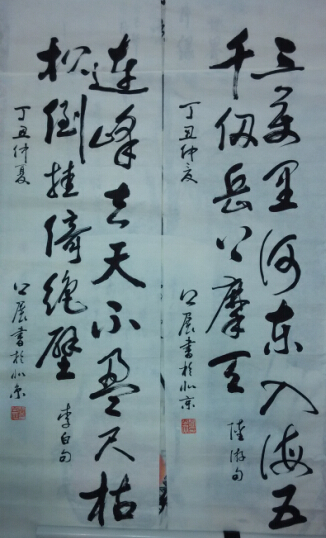 三萬里河東入海五
千仞岳上摩天
陸游句
丁丑仲夏
書於北京
連峰去天不盈尺枯
松倒挂倚絕壁
李白句
丁丑仲夏
書於北京